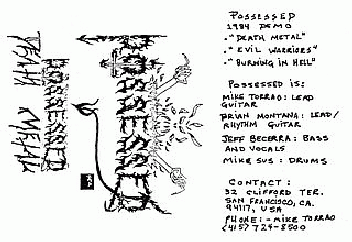 POSSESSED
DEATH METAL
POSSESSED
POSSESSED
1984 DEMO
• "DEATH METAL"
• "EVIL WARRIORS"
• "BURNING IN HELL"
POSSESSED IS:
MIKE TORRAO: LEAD
GUITAR
BRIAN MONTANA: LEAD/
RHYTHM GUITAR
JEFF BECERRA: BASS
AND VOCALS
MIKE SUS: DRUMS
CONTACT:
32 CLIFFORD TER.
SAN FRANCISCO, CA.
94117, USA
PHONE: - MIKE TORRAO
(415) 724-8500